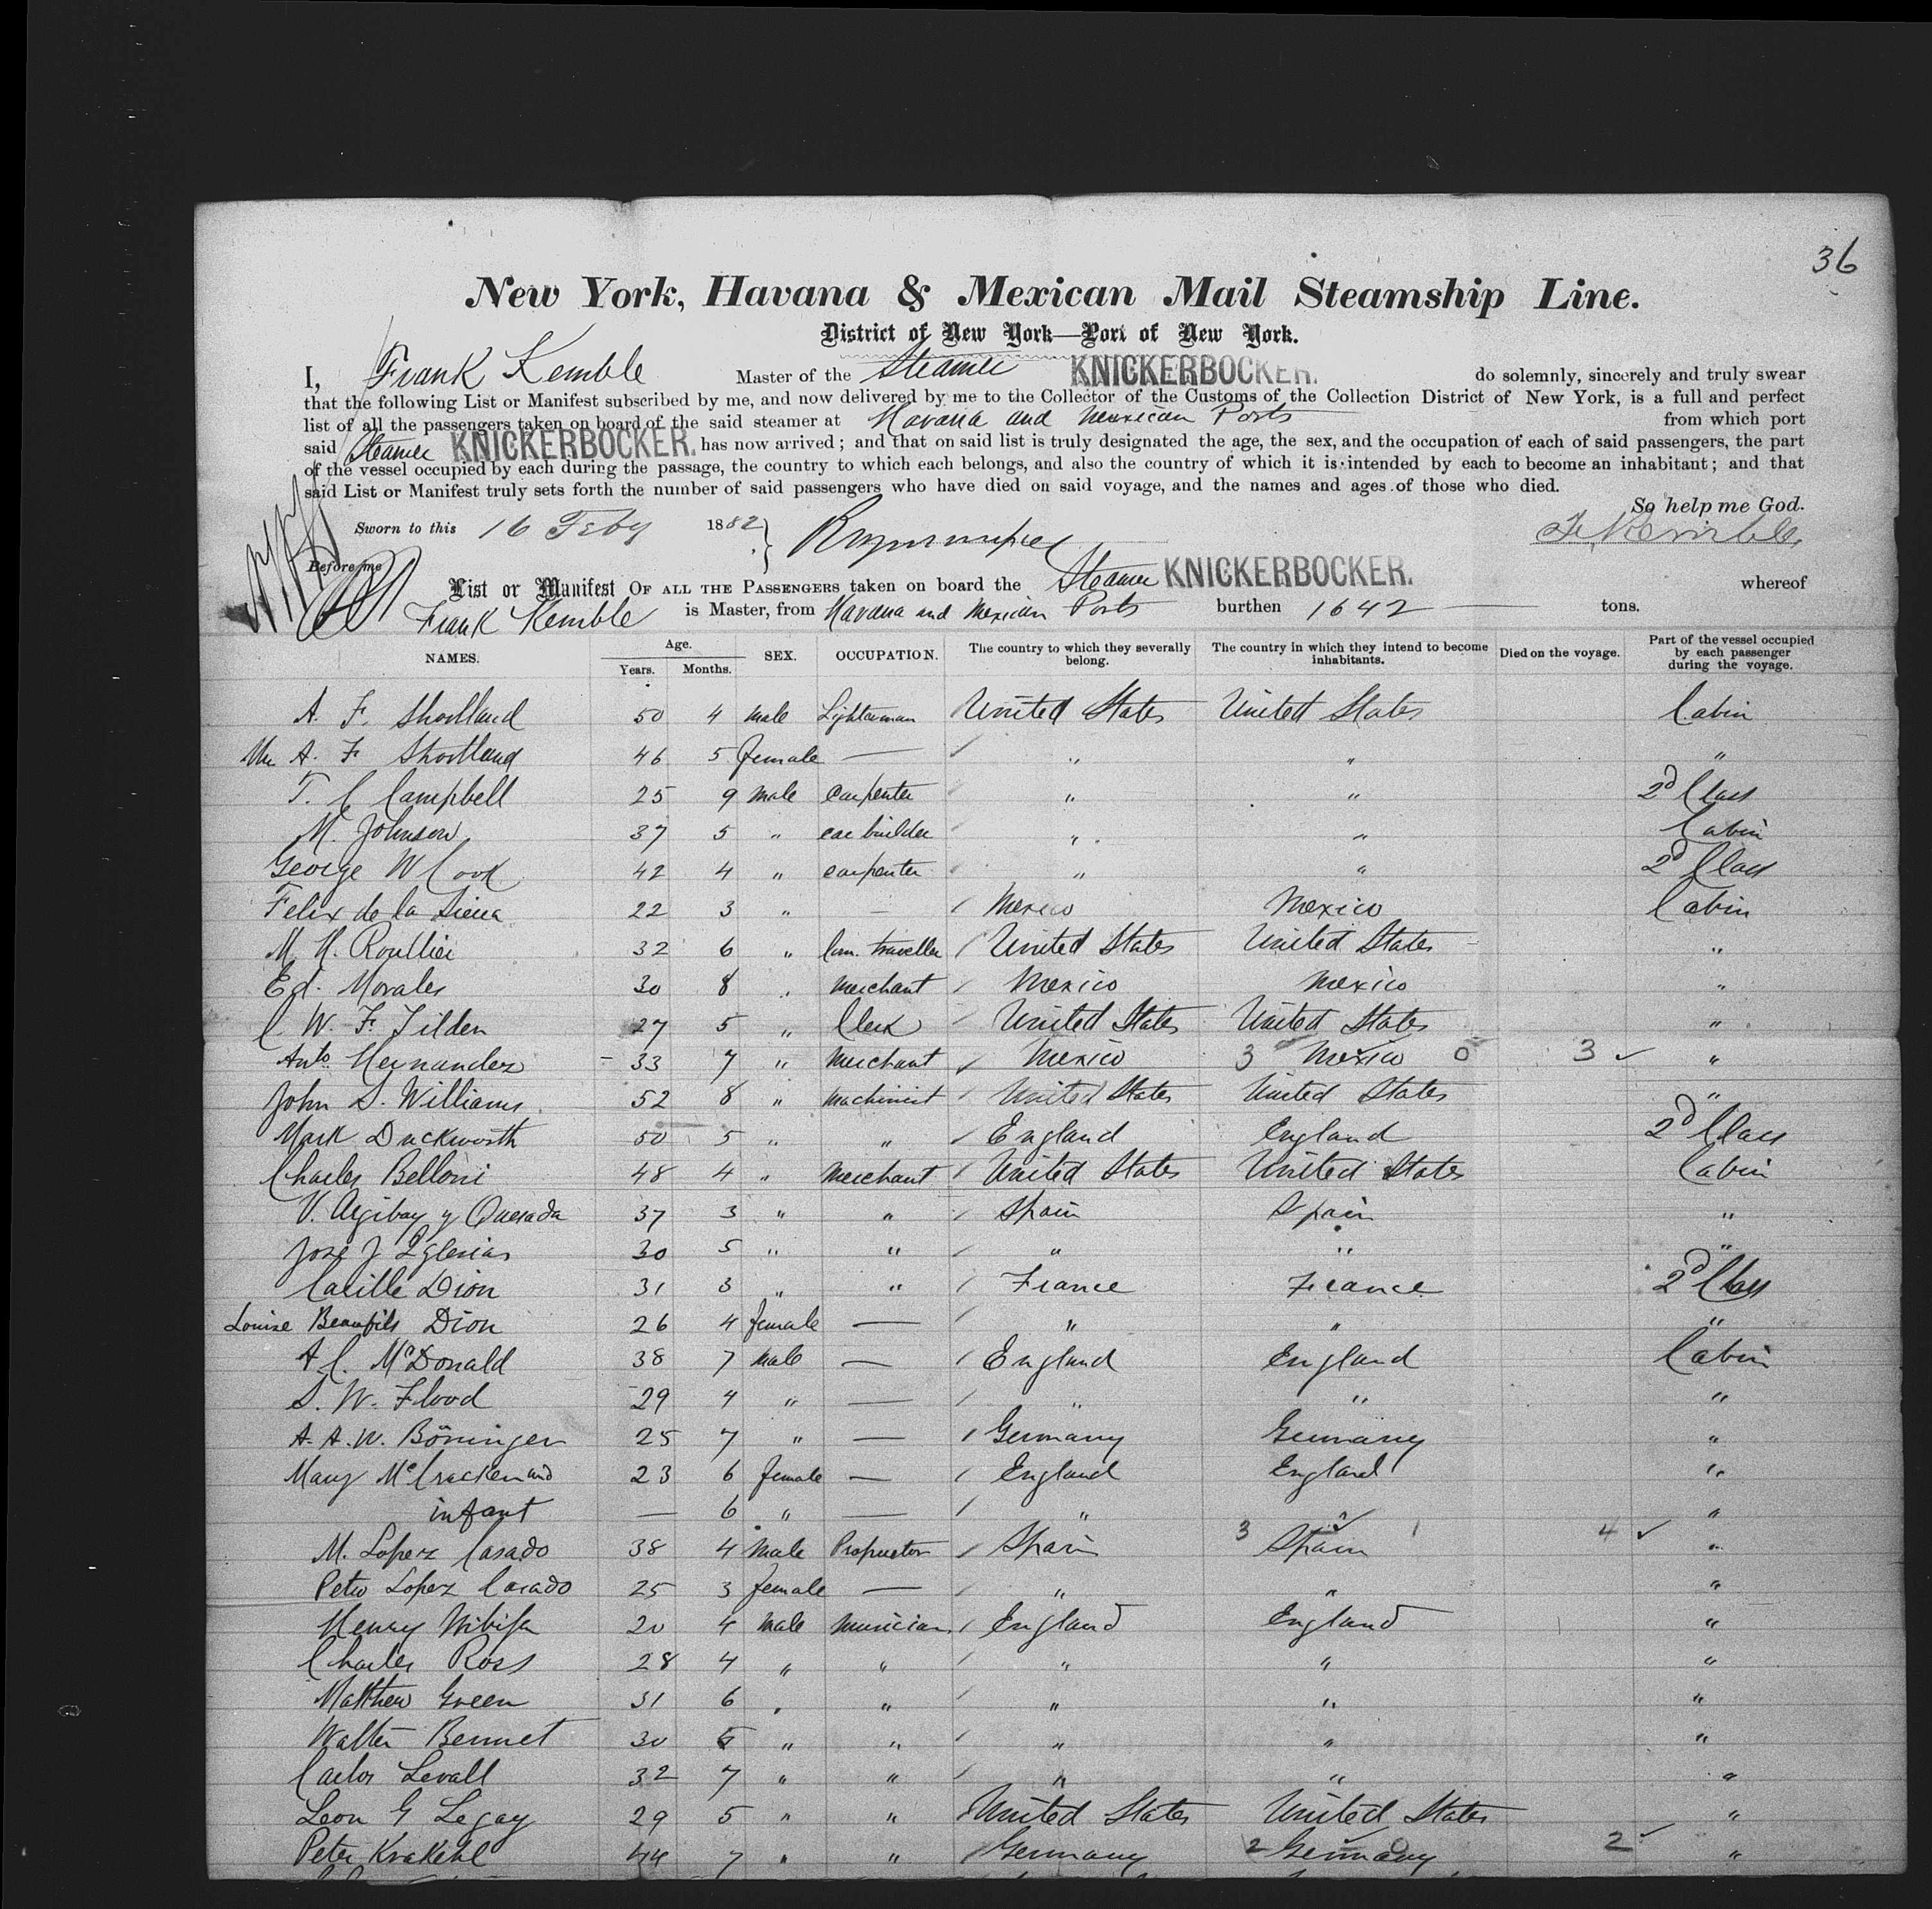 36
New York, Havana & Mexican Mail Steamship Line.
District of New York—Port of New York.
I, Frank Kemble Master of the Steamer KNICKERBOCKER. do solemnly, sincerely and truly swear
that the following List or Manifest subscribed by me, and now delivered by me to the Collector of the Customs of the Collection District of New York, is a full and perfect
list of all the passengers taken on board of the said steamer at Havana and Mexican Ports from which port
said Steamer KNICKERBOCKER. has now arrived; and that on said list is truly designated the age, the sex, and the occupation of each of said passengers, the part
of the vessel occupied by each during the passage, the country to which each belongs, and also the country of which it is intended by each to become an inhabitant; and that
said List or Manifest truly sets forth the number of said passengers who have died on said voyage, and the names and ages of those who died.
So help me God.
Sworn to this 16 Feby 1882 F. Kemble
Before me
List or Manifest OF ALL THE PASSENGERS taken on board the Steamer KNICKERBOCKER. whereof
Frank Kemble is Master, from Havana and Mexican Ports burthen 1642 tons.
NAMES. Age. Years. Months. SEX. OCCUPATION. The country to which they severally belong. The country in which they intend to become inhabitants. Died on the voyage. Part of the vessel occupied by each passenger during the voyage.
A. F. Shortland 50 4 male Lighterman United States United States Cabin
A. F. Shortland 46 5 female — " " "
T. C Campbell 25 9 male carpenter " " 2d Class
M. Johnson 37 5 " car builder " " Cabin
George W Cook 42 4 " carpenter " " 2d Class
Felix de la Sierra 22 3 " — Mexico Mexico Cabin
M. H. Roullier 32 6 " Com. traveller United States United States "
Ed. Morales 30 8 " merchant Mexico Mexico "
C. W. F. Tilden 27 5 " Clerk United States United States "
Anto. Hernandez 33 7 " merchant Mexico 3 Mexico 0 3 "
John S. Williams 52 8 " machinist United States United States "
Mark Duckworth 50 5 " " England England 2d Class
Charles Belloni 48 4 " merchant United States United States Cabin
V. Argibay y Quesada 37 3 " " Spain Spain "
Jose J Iglesias 30 5 " " " " "
Dion 31 3 " " France France 2d Class
Louise Beaufils Dion 26 4 female — " " "
A. C. McDonald 38 7 male — England England Cabin
S. W. Flood 29 4 " — " " "
A. A. W. Böninger 25 7 " — Germany Germany "
Mary McCracken and 23 6 female — England England "
infant — 6 " — " " "
M. Lopez Casado 38 4 male Proprietor Spain 3 Spain 1 4 "
Lopez Casado 25 3 female — " " "
Henry 20 4 male musician England England "
Charles Ross 28 4 " " " " "
Matthew Green 31 6 " " " " "
Walter Bennet 30 5 " " " " "
Carlos Levall 32 7 " " " " "
Leon G Legay 29 5 " " United States United States "
Peter Krakehl 44 7 " " Germany 2 Germany 0 2 "